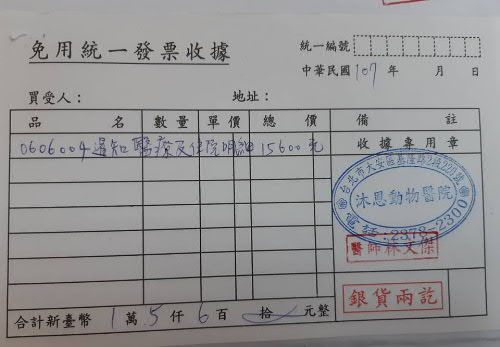 免用統一發票收據
統一編號
中華民國 107 年 月 日
買受人： 地址：
品名 數量 單價 總價 備註
0606004 通知 醫療及住院明細 15600元
收據專用章
台北市大安區基隆路2段220號
沐恩動物醫院
電話:2378-2300
醫師林文傑
銀貨兩訖
合計新臺幣 1 萬 5 仟 6 百 拾 元整